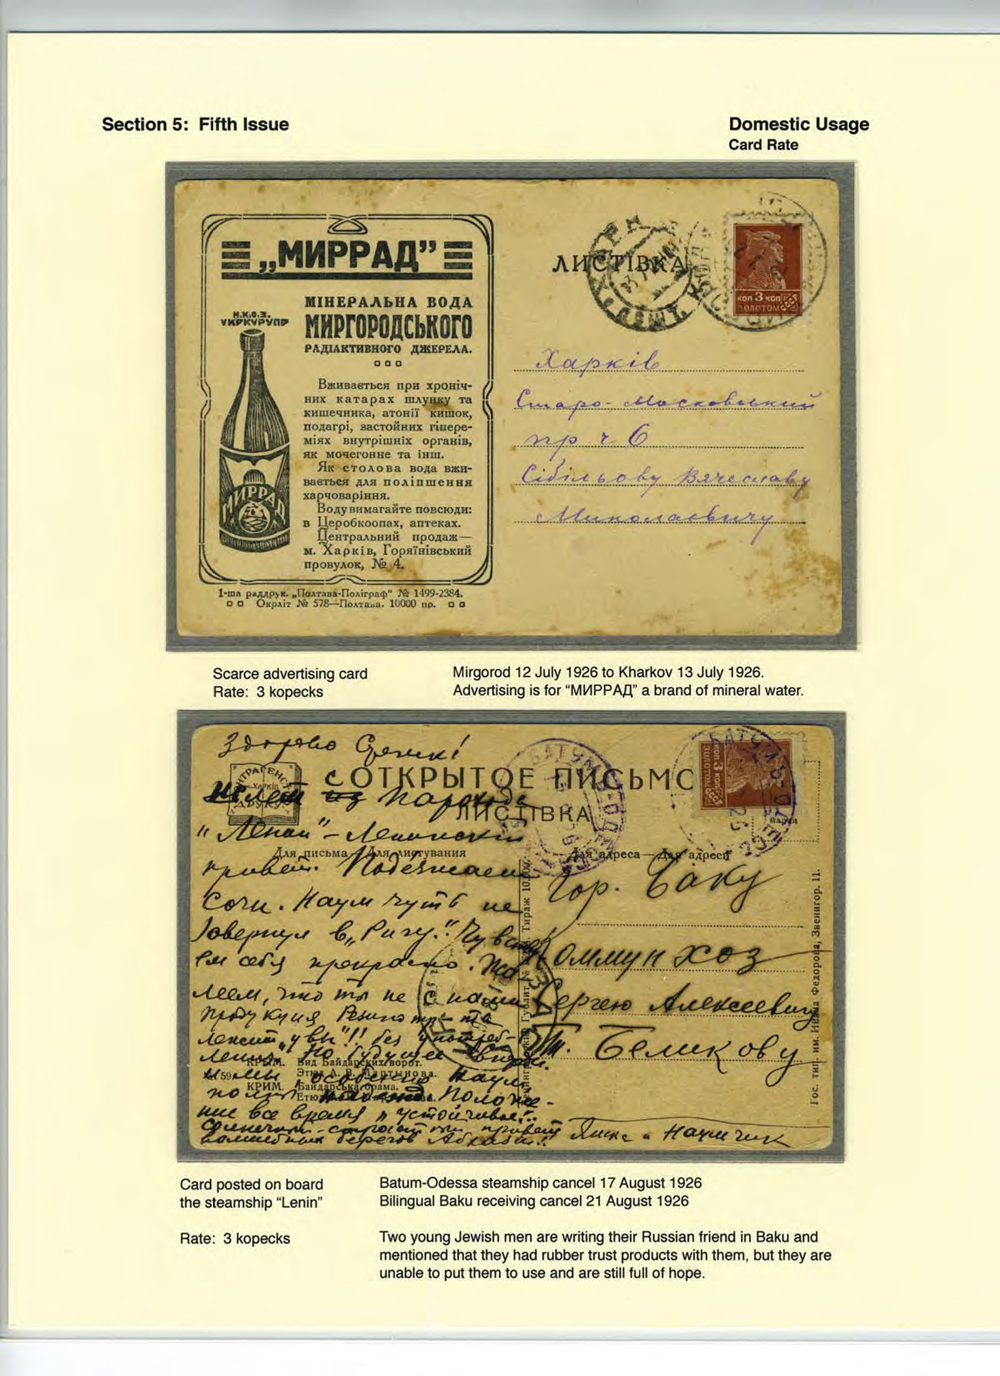 Section 5: Fifth Issue
Domestic Usage
Card Rate
„МИРРАД”
Н.К.О.З.
УКРКУРУПР
МІНЕРАЛЬНА ВОДА
МИРГОРОДСЬКОГО
РАДІАКТИВНОГО ДЖЕРЕЛА.
Вживається при хроніч-
них катарах шлунку та
кишечника, атонії кишок,
подагрі, застойних гіпере-
міях внутрішніх органів,
як мочегонне та інш.
Як столова вода вжи-
вається для поліпшення
харчоваріння.
Воду вимагайте повсюди:
в Церобкоопах, аптеках.
Центральний продаж—
м. Харків, Горяїнівський
провулок, № 4.
МИРРАД
1-ша раддрук. „Полтава-Поліграф“ № 1499-2384.
Окрліт № 578—Полтава. 10000 пр.
ЛИСТІВКА
КОП 3 КОП
ЗОЛОТОМ
Харків
Старо-Московський
пр ч 6
Сібільову Вячеславу
Миколаевичу
Scarce advertising card
Rate: 3 kopecks
Mirgorod 12 July 1926 to Kharkov 13 July 1926.
Advertising is for “МИРРАД” a brand of mineral water.
Здорово Сережик!
ОТКРЫТОЕ ПИСЬМО
ЛИСТІВКА
с парохода
"Ленин" - Ленинский
Для письма Для листування
Для адреса — Для адреси
привет. Подезжаем
Сочи. Наум чуть не
в „Ригу". Чувству
ем себя прекрасно. Жа
леем, что ты не с нами
Гор. Баку
Коммунхоз
Сергею Алексеевичу
Т. Беликову
КРИМ. Вид Байдарских ворот.
КРИМ. Байдарська брама.
все время „устойчивое"
Яшка и Наумчик
Гос. тип. им. Ивана Федорова, Звенигор. 11.
Card posted on board
the steamship “Lenin”
Rate: 3 kopecks
Batum-Odessa steamship cancel 17 August 1926
Bilingual Baku receiving cancel 21 August 1926
Two young Jewish men are writing their Russian friend in Baku and
mentioned that they had rubber trust products with them, but they are
unable to put them to use and are still full of hope.